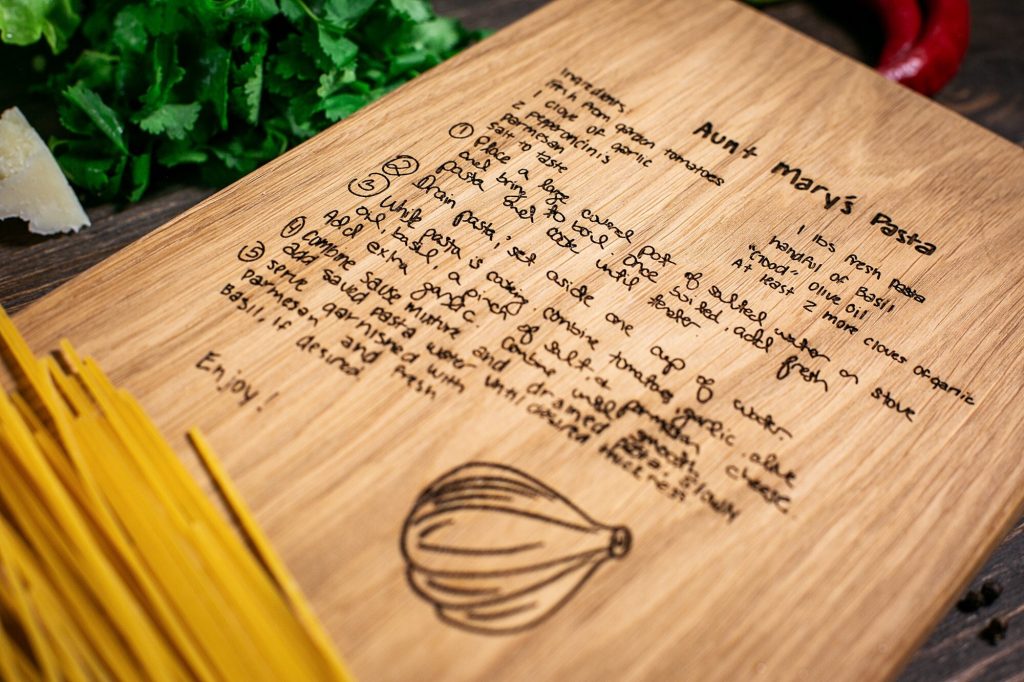 Aunt Mary's Pasta
Ingredients:
fresh from garden tomatoes
1 clove of garlic
2 peperoncinis
parmesan
salt to taste
1 lbs fresh pasta
handful of Basil
"Good" olive oil
At least 2 more cloves of garlic
① Place a large covered pot of salted water on stove
and bring to boil. Once boiled, add fresh
pasta and cook until tender
② Drain pasta, set aside one cup of water.
③ While pasta is cooking combine tomatoes, garlic, olive
oil, basil, a pinch of salt & parmesan cheese
Add extra garlic. Combine until smooth
④ Combine sauce mixture and drained pasta, slowly
add saved pasta water until desired thickness
⑤ serve garnished with
parmesan and fresh
Basil, if desired.
Enjoy!